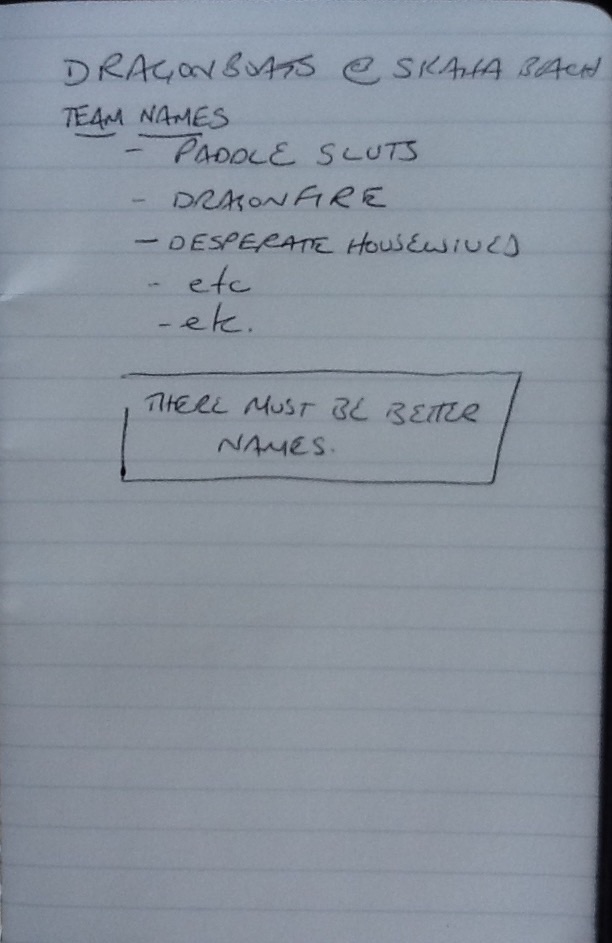 DRAGONBOATS @ SKAHA BEACH
TEAM NAMES
- PADDLE SLUTS
- DRAGONFIRE
- DESPERATE HOUSEWIVES
- etc
- etc.
THERE MUST BE BETTER
NAMES.